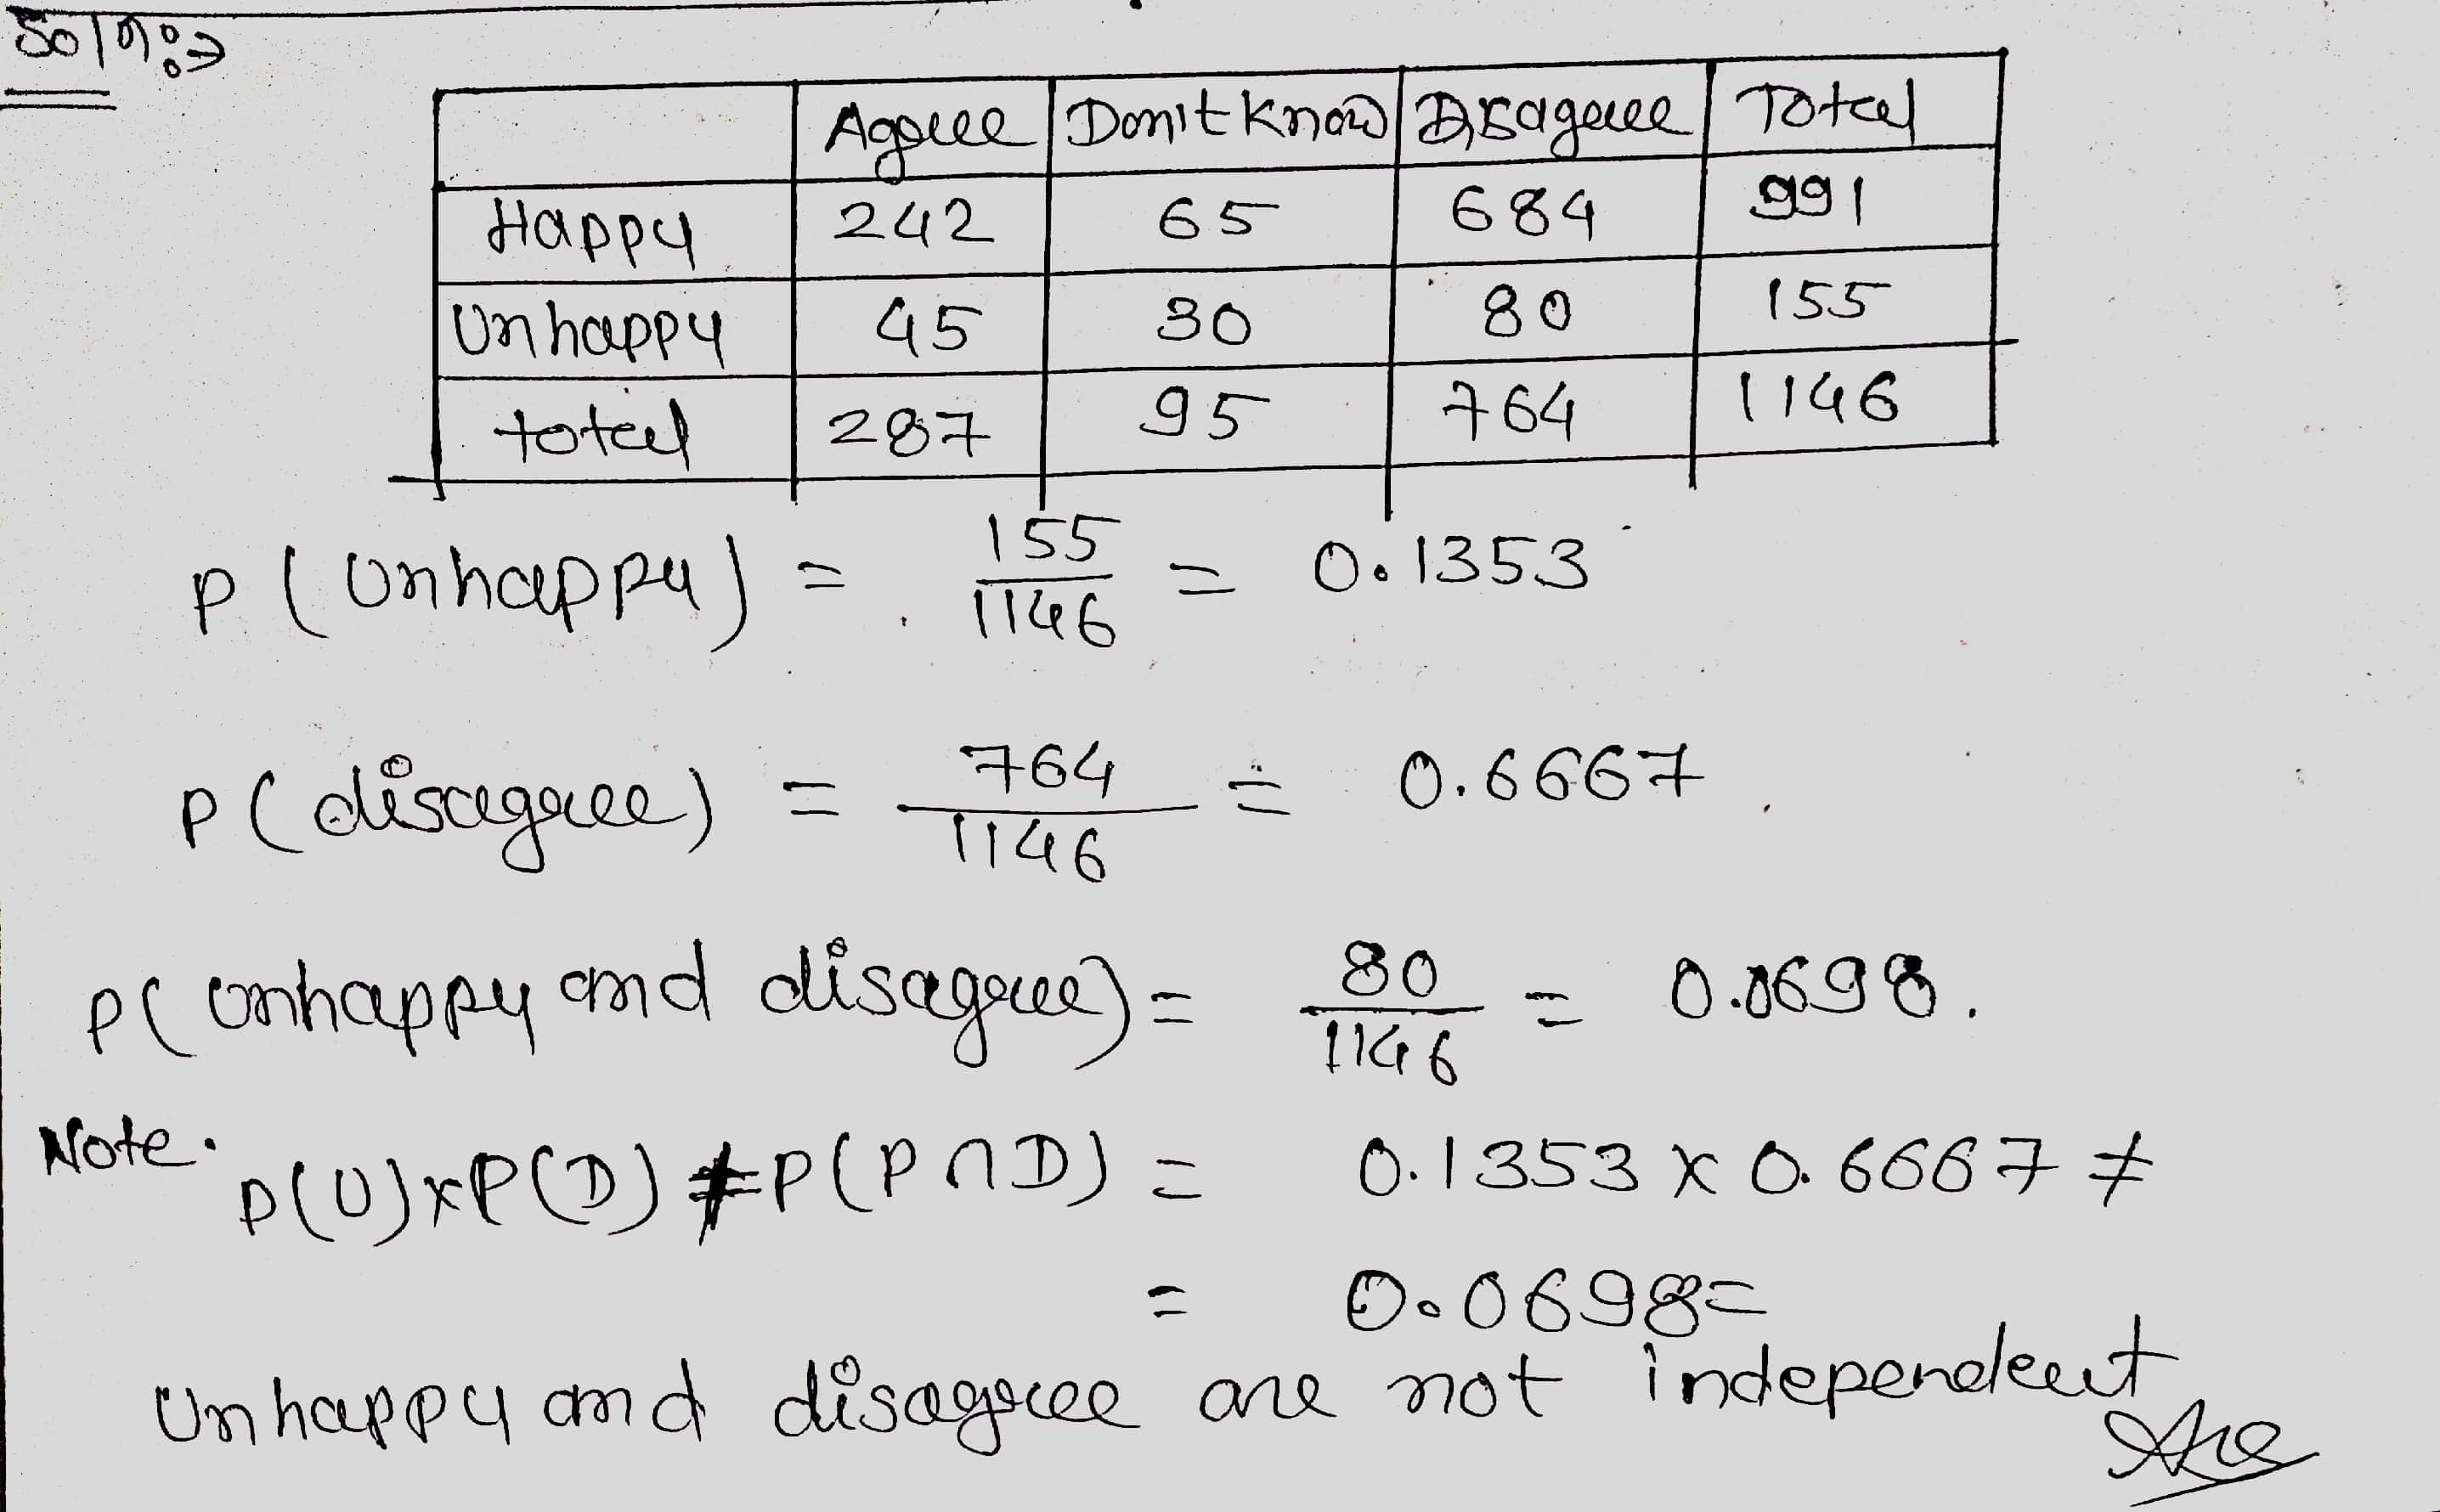 Soln:⇒
Agree Don't Know Disagree Total
Happy 242 65 684 991
Unhappy 45 30 80 155
total 287 95 764 1146
P(Unhappy) = 155/1146 = 0.1353
P(disagree) = 764/1146 = 0.6667
P(unhappy and disagree) = 80/1146 = 0.0698.
Note. P(U)xP(D) ≠ P(P∩D) = 0.1353 x 0.6667 ≠
= 0.0698=
Unhappy and disagree are not independent